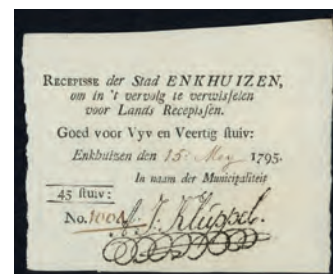 RECEPISSE der Stad ENKHUIZEN,
om in 't vervolg te verwisselen
voor Lands Recepissen.
Goed voor Vyv en Veertig stuiv:
Enkhuizen den 15 May 1795.
In naam der Municipaliteit
45 stuiv:
No. 1004 A. J. Kluppel.